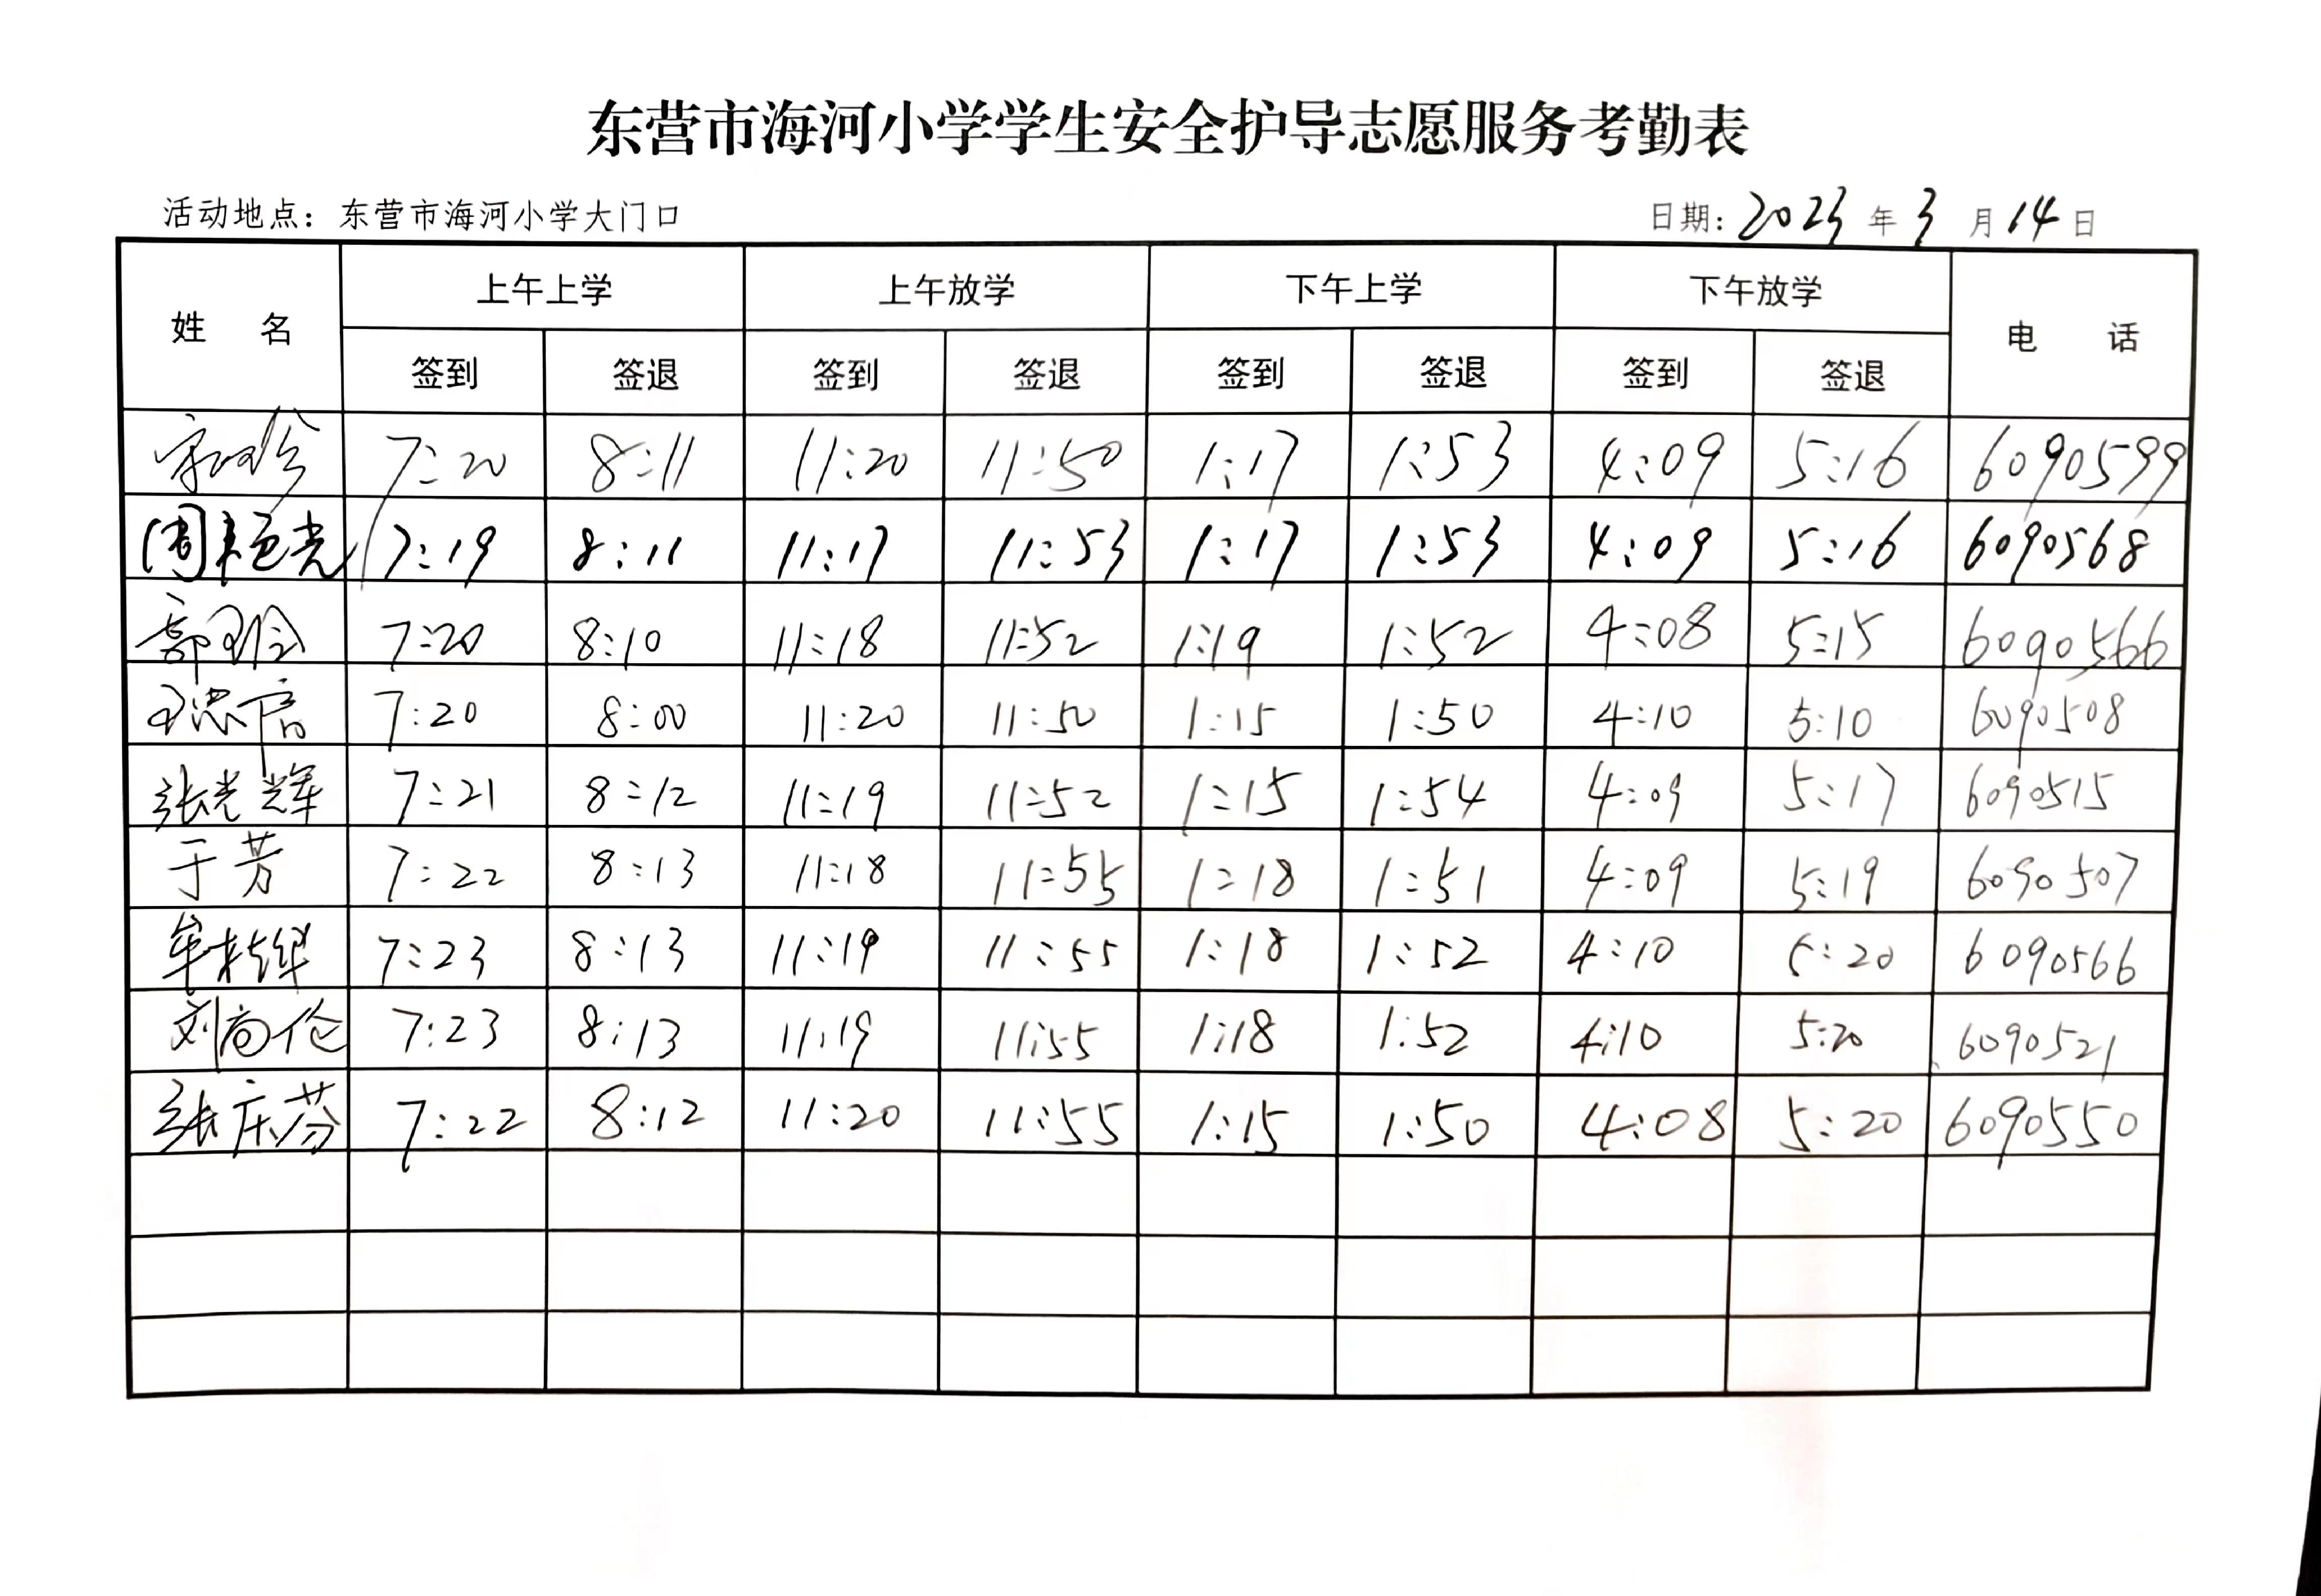 东营市海河小学学生安全护导志愿服务考勤表
活动地点：东营市海河小学大门口 日期：2023年3月14日
姓 名 上午上学 上午放学 下午上学 下午放学 电 话
签到 签退 签到 签退 签到 签退 签到 签退
7:20 8:11 11:20 11:50 1:17 1:53 4:09 5:16 6090599
周艳光 7:19 8:11 11:17 11:53 1:17 1:53 4:09 5:16 6090568
7:20 8:10 11:18 11:52 1:19 1:52 4:08 5:15 6090566
7:20 8:00 11:20 11:50 1:15 1:50 4:10 5:10 6090508
张光辉 7:21 8:12 11:19 11:52 1:15 1:54 4:09 5:17 6090515
于芳 7:22 8:13 11:18 11:55 1:18 1:51 4:09 5:19 6090507
7:23 8:13 11:19 11:55 1:18 1:52 4:10 5:20 6090566
刘尚伦 7:23 8:13 11:19 11:55 1:18 1:52 4:10 5:20 6090521
张庆芬 7:22 8:12 11:20 11:55 1:15 1:50 4:08 5:20 6090550